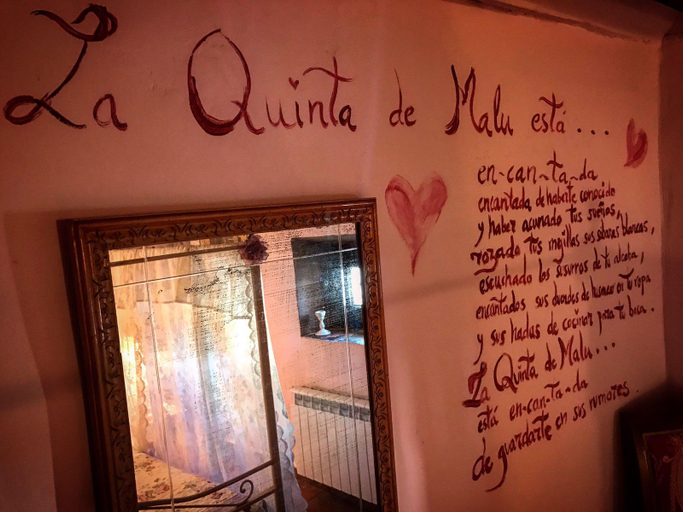 La Quinta de Malu está...
en-can-ta-da
encantada de haberte conocido
y haber acunado tus sueños,
rozado tus mejillas sus sábanas blancas,
escuchado los susurros de tu alcoba,
encantados sus duendes de tu ropa
y sus hadas de cocinar para tu boca.
La Quinta de Malu...
está en-can-ta-da
de guardarte en sus rumores.